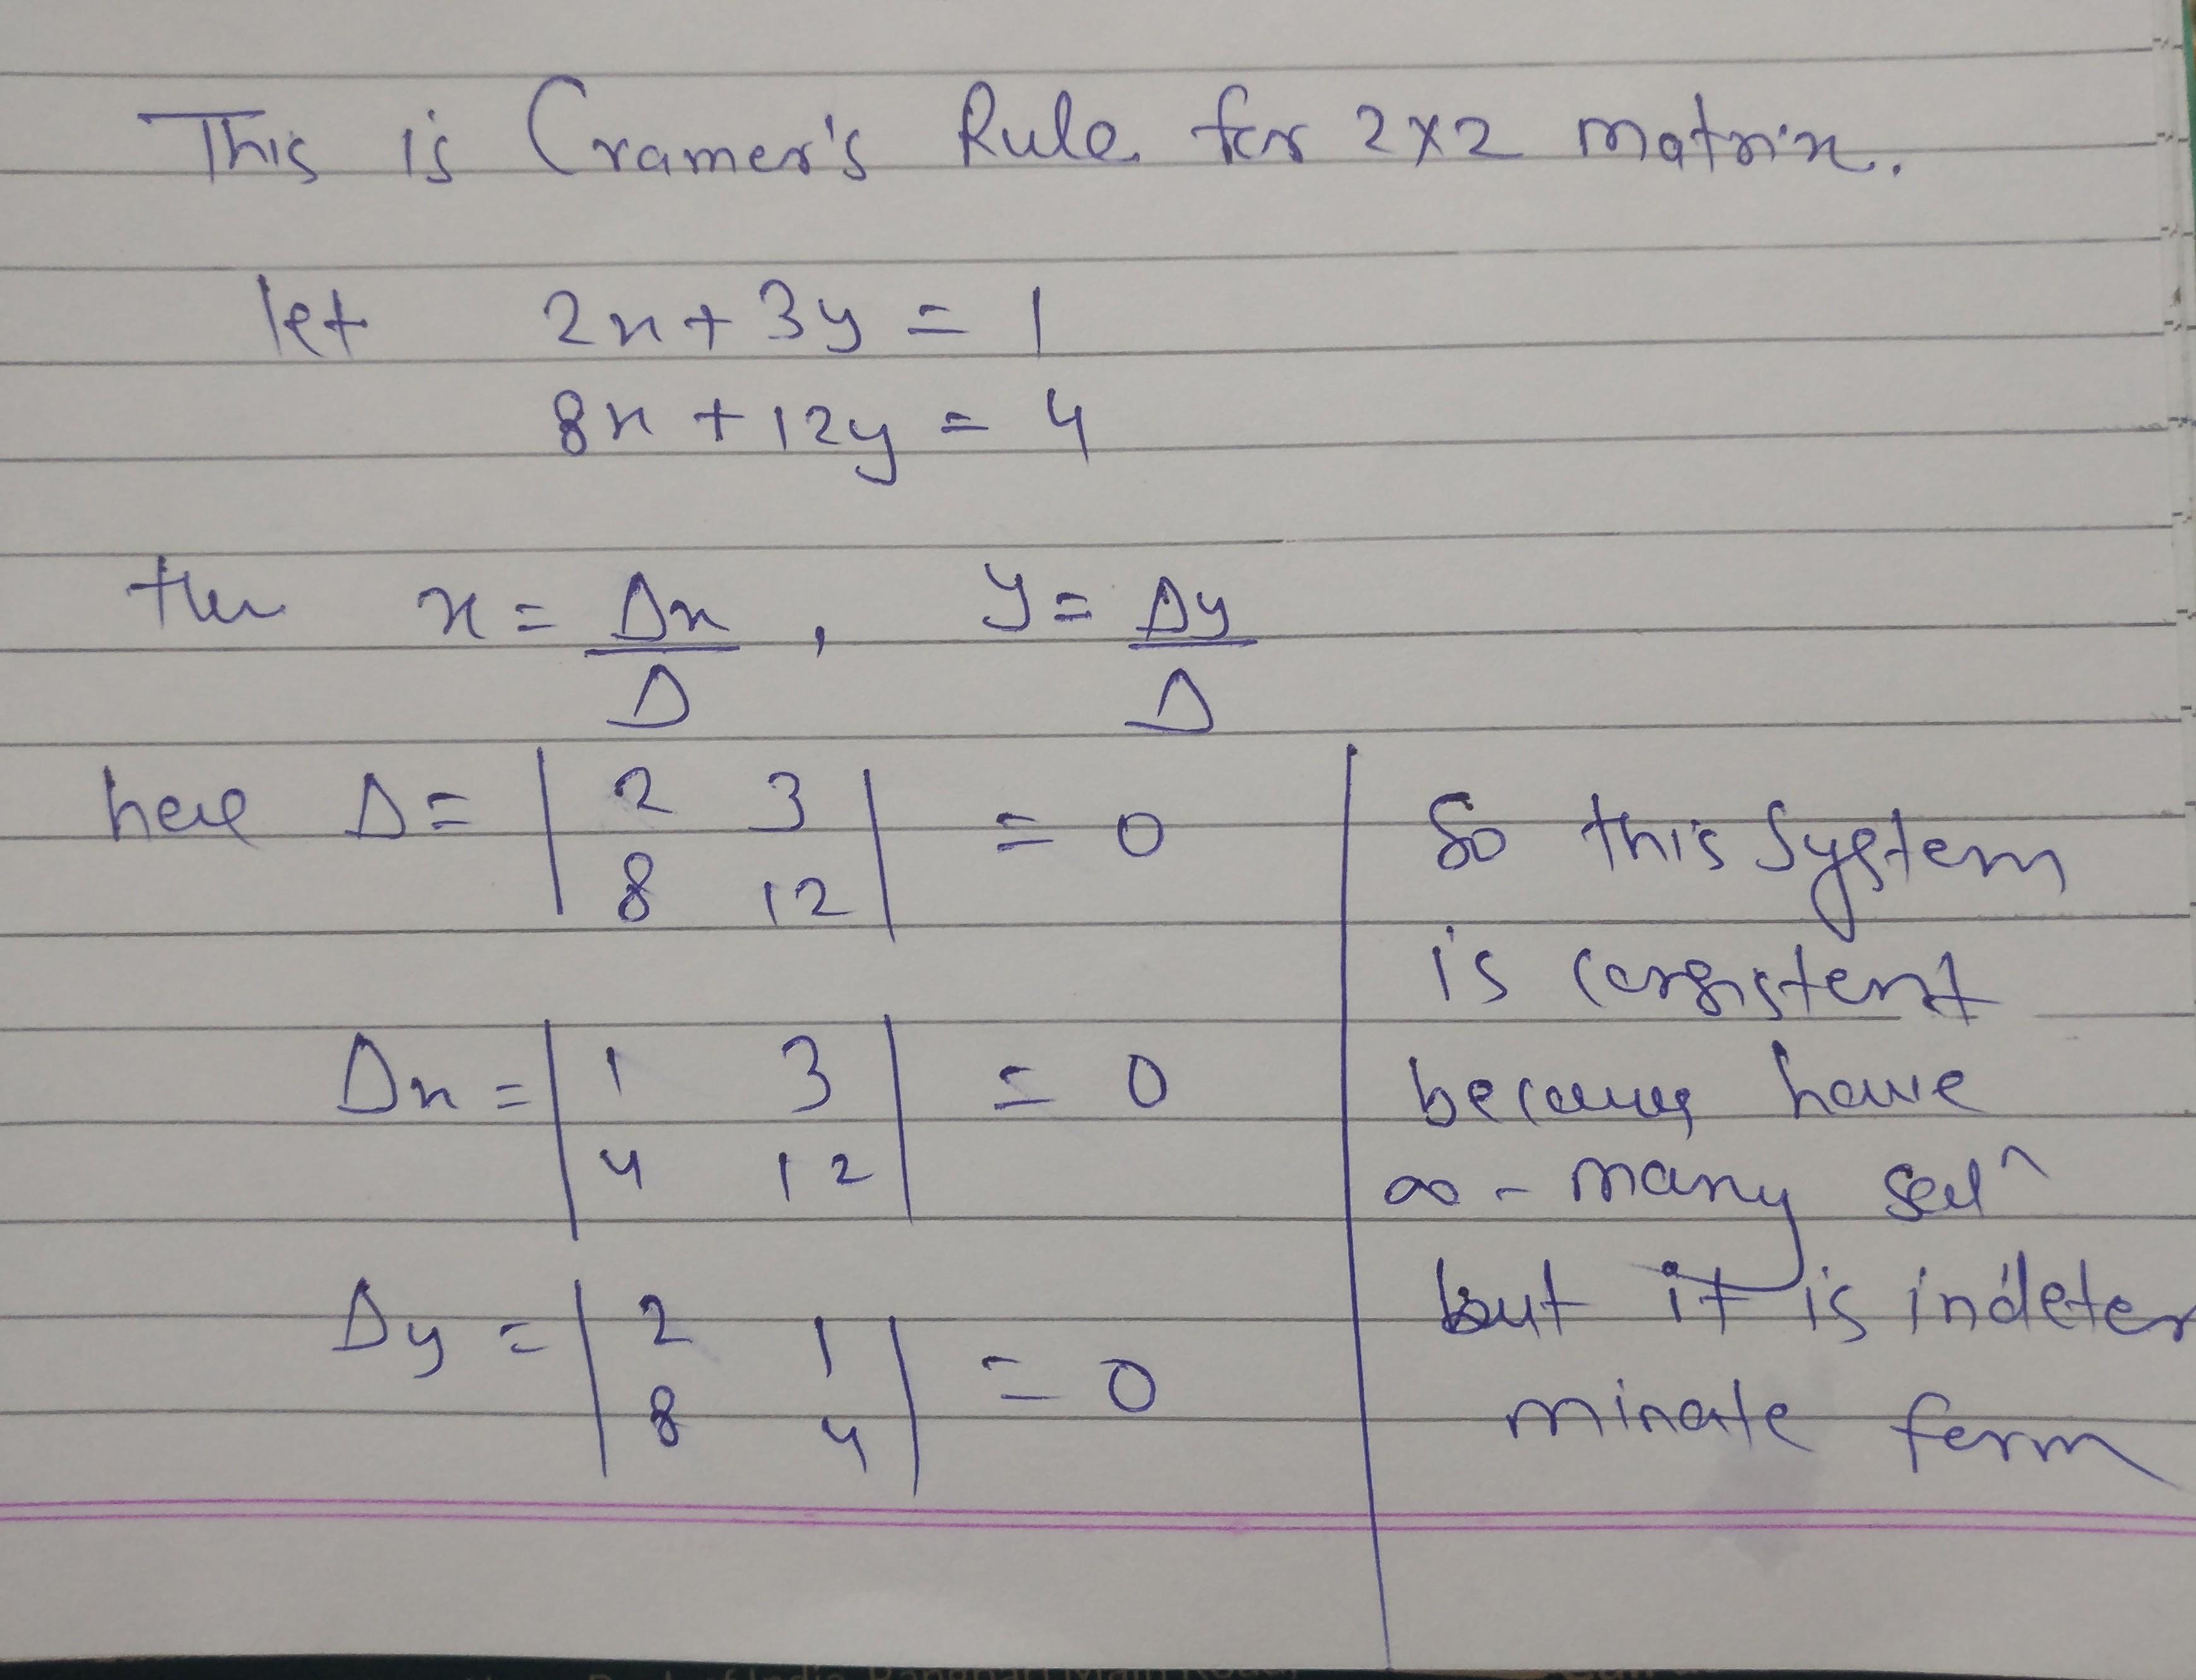 This is Cramer's Rule for 2x2 matrix.
let 2x + 3y = 1
8x + 12y = 4
then x = Δx / Δ , y = Δy / Δ
here Δ = | 2 3 | = 0
| 8 12 |
Δx = | 1 3 | = 0
| 4 12 |
Δy = | 2 1 | = 0
| 8 4 |
So this system
is consistent
because have
∞ - many solⁿ
but it is indeter
minate form